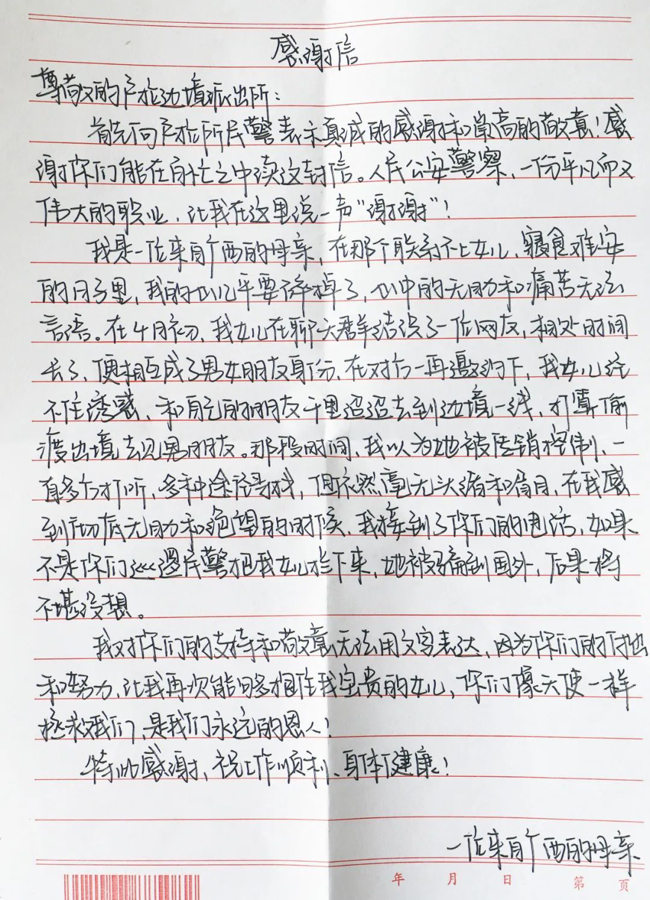 感谢信
尊敬的户拉边境派出所：
首先向户拉所民警表示真诚的感谢和崇高的敬意！感
谢你们能在百忙之中读这封信。人民公安警察，一份平凡而又
伟大的职业，让我在这里说一声“谢谢”！
我是一位来自广西的母亲，在那个联系不上女儿，寝食难安
的日子里，我的心几乎要碎掉了，心中的无助和痛苦无法
言语。在4月初，我女儿在聊天群结识了一位网友，相处时间
长了，便相互成了男女朋友身份，在对方一再邀约下，我女儿经
不住诱惑，和自己的朋友千里迢迢去到边境一线，打算偷
渡出境去见男朋友。那段时间，我以为她被传销控制，一
直多方打听，多种途径寻找，但依然毫无头绪和眉目，在我感
到彻底无助和绝望的时候，我接到了你们的电话，如果
不是你们巡逻民警把我女儿拦下来，她被骗到国外，后果将
不堪设想。
我对你们的支持和敬意无法用文字表达，因为你们的付出
和努力，让我再次能够抱住我宝贵的女儿，你们像天使一样
拯救我们，是我们永远的恩人！
特此感谢，祝工作顺利、身体健康！
一位来自广西的母亲
年 月 日 第 页